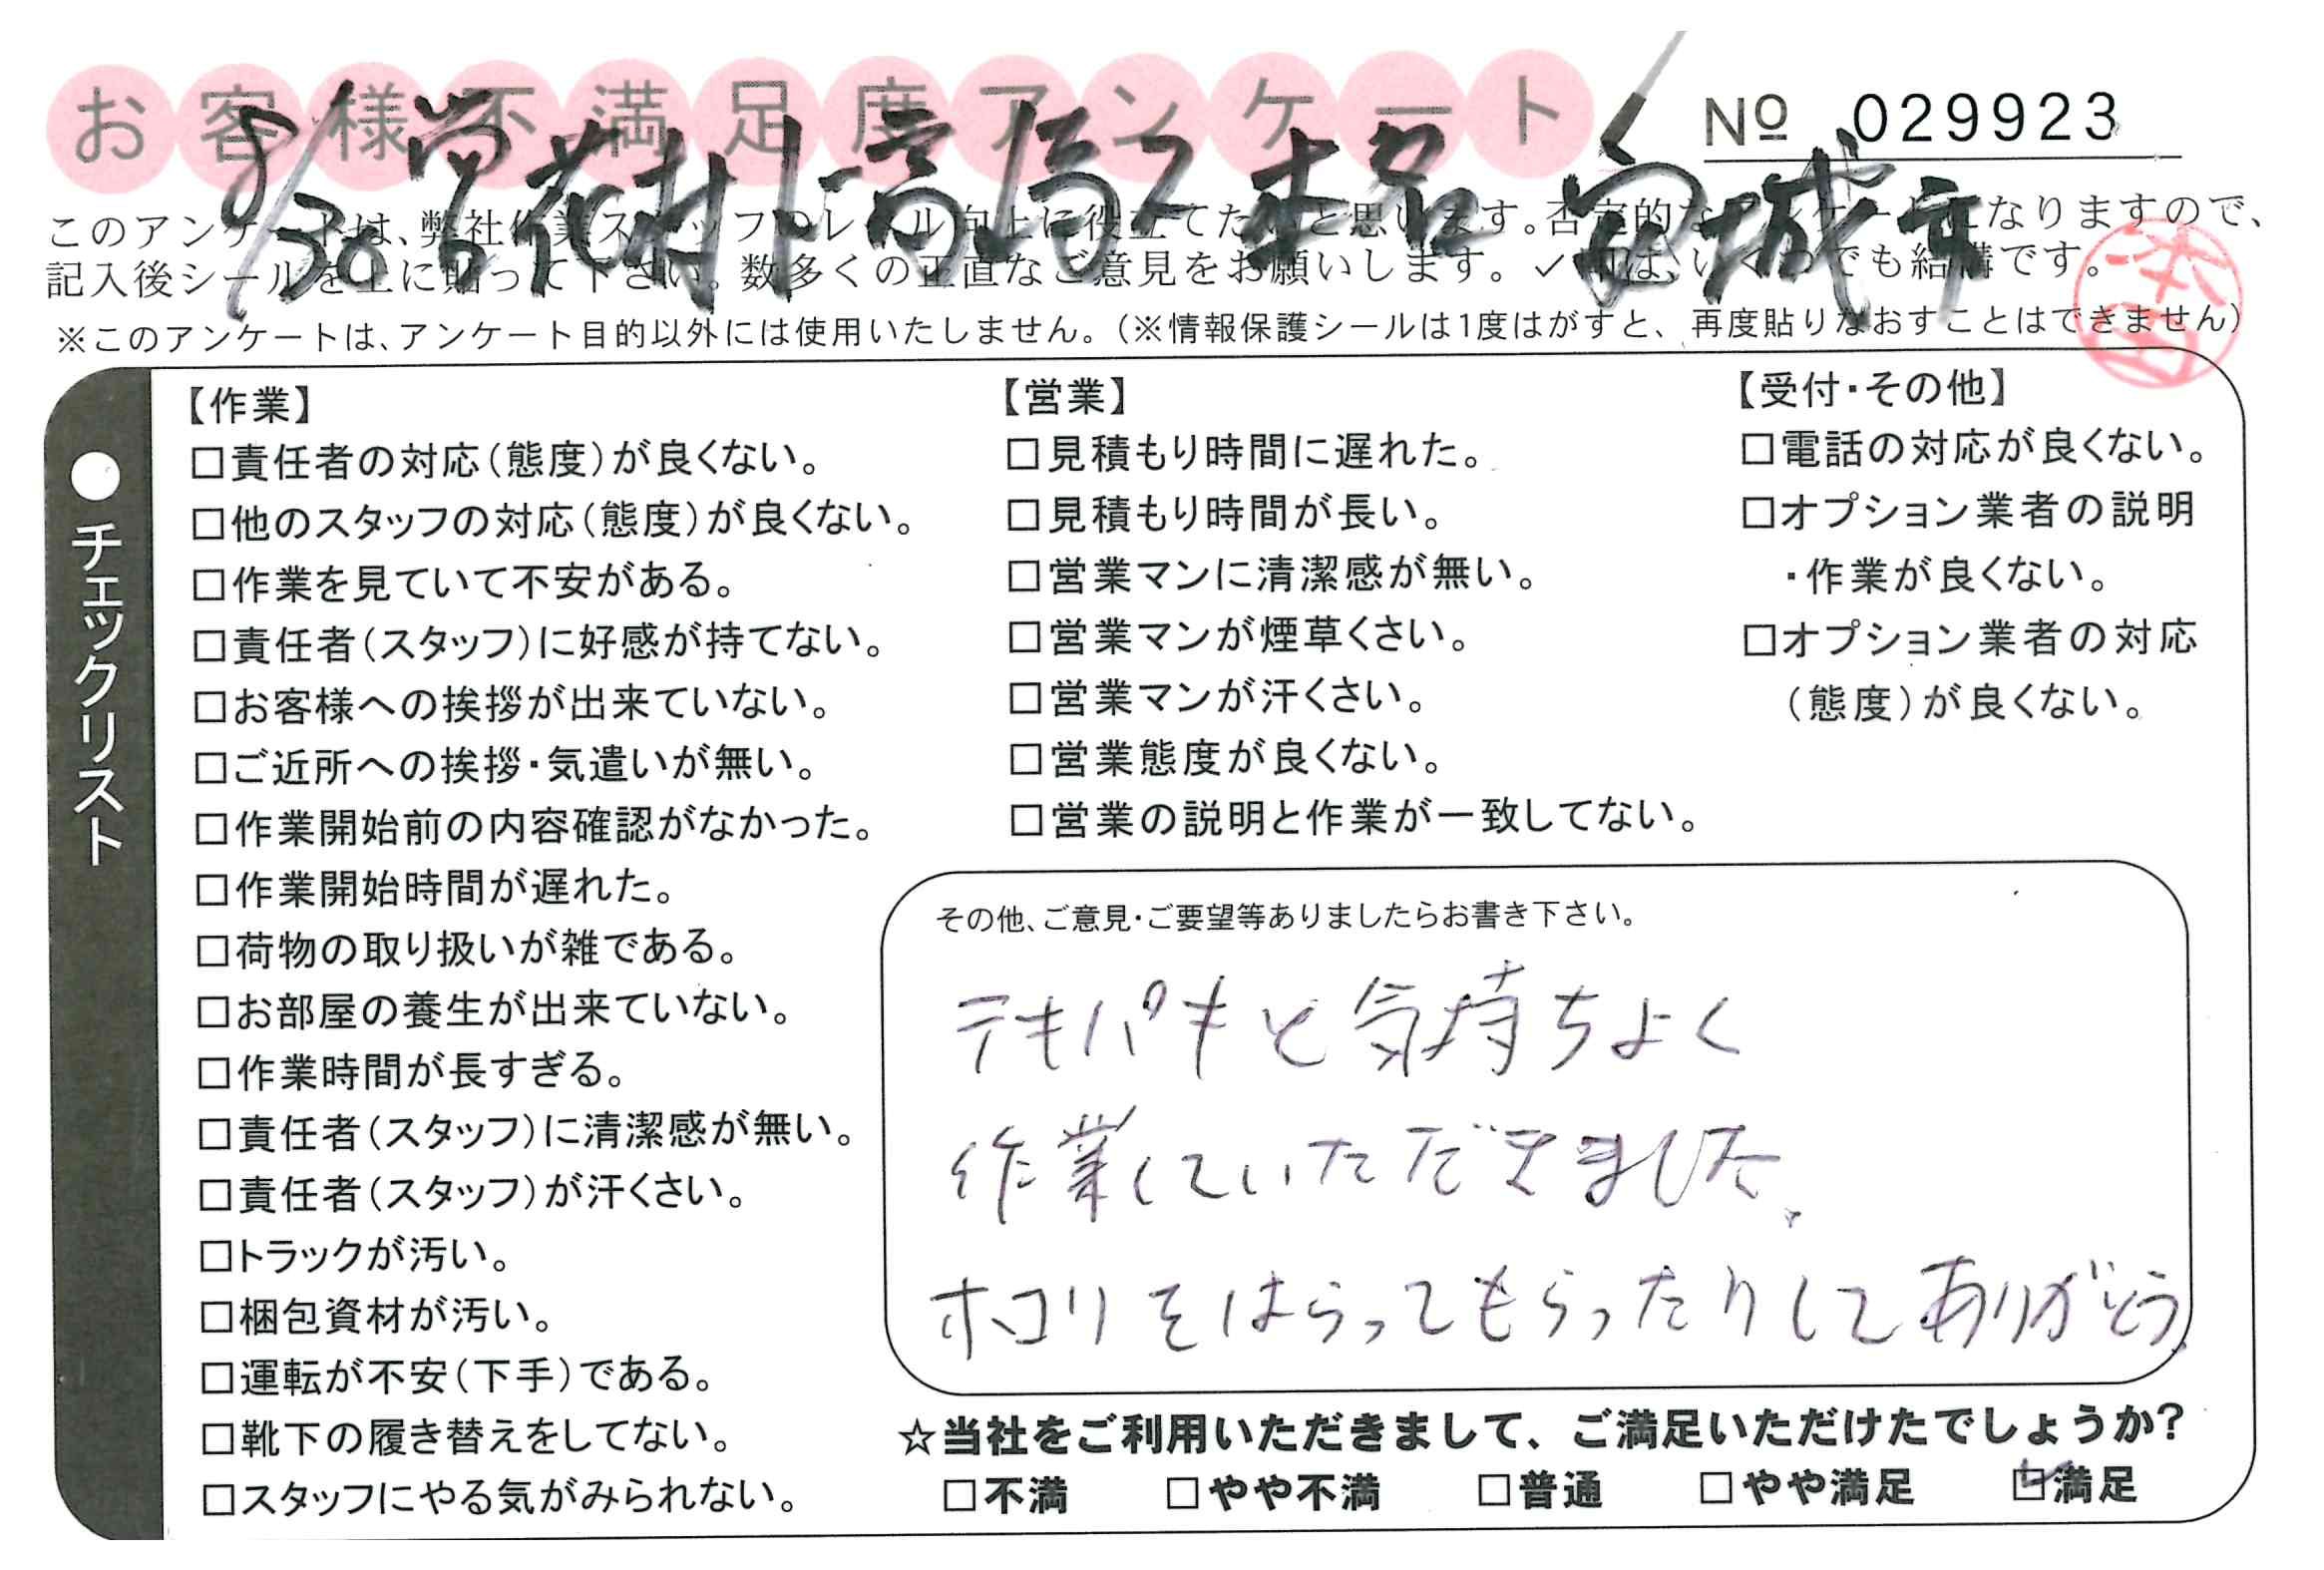 お客様不満足度アンケート
№ 029923
8/30 営 花村 高尾 桑名 安城市
このアンケートは、弊社作業スタッフのレベル向上に役立てたいと思います。否定的なアンケートになりますので、
記入後シールを上に貼って下さい。数多くの正直なご意見をお願いします。✓印は、いくつでも結構です。
※このアンケートは、アンケート目的以外には使用いたしません。(※情報保護シールは1度はがすと、再度貼りなおすことはできません)
●チェックリスト
【作業】
□責任者の対応(態度)が良くない。
□他のスタッフの対応(態度)が良くない。
□作業を見ていて不安がある。
□責任者(スタッフ)に好感が持てない。
□お客様への挨拶が出来ていない。
□ご近所への挨拶・気遣いが無い。
□作業開始前の内容確認がなかった。
□作業開始時間が遅れた。
□荷物の取り扱いが雑である。
□お部屋の養生が出来ていない。
□作業時間が長すぎる。
□責任者(スタッフ)に清潔感が無い。
□責任者(スタッフ)が汗くさい。
□トラックが汚い。
□梱包資材が汚い。
□運転が不安(下手)である。
□靴下の履き替えをしてない。
□スタッフにやる気がみられない。
【営業】
□見積もり時間に遅れた。
□見積もり時間が長い。
□営業マンに清潔感が無い。
□営業マンが煙草くさい。
□営業マンが汗くさい。
□営業態度が良くない。
□営業の説明と作業が一致してない。
【受付・その他】
□電話の対応が良くない。
□オプション業者の説明
・作業が良くない。
□オプション業者の対応
(態度)が良くない。
その他、ご意見・ご要望等ありましたらお書き下さい。
テキパキと気持ちよく
作業していただきました。
ホコリをはらってもらったりしてありがとう。
☆当社をご利用いただきまして、ご満足いただけたでしょうか?
□不満 □やや不満 □普通 □やや満足 ☑満足